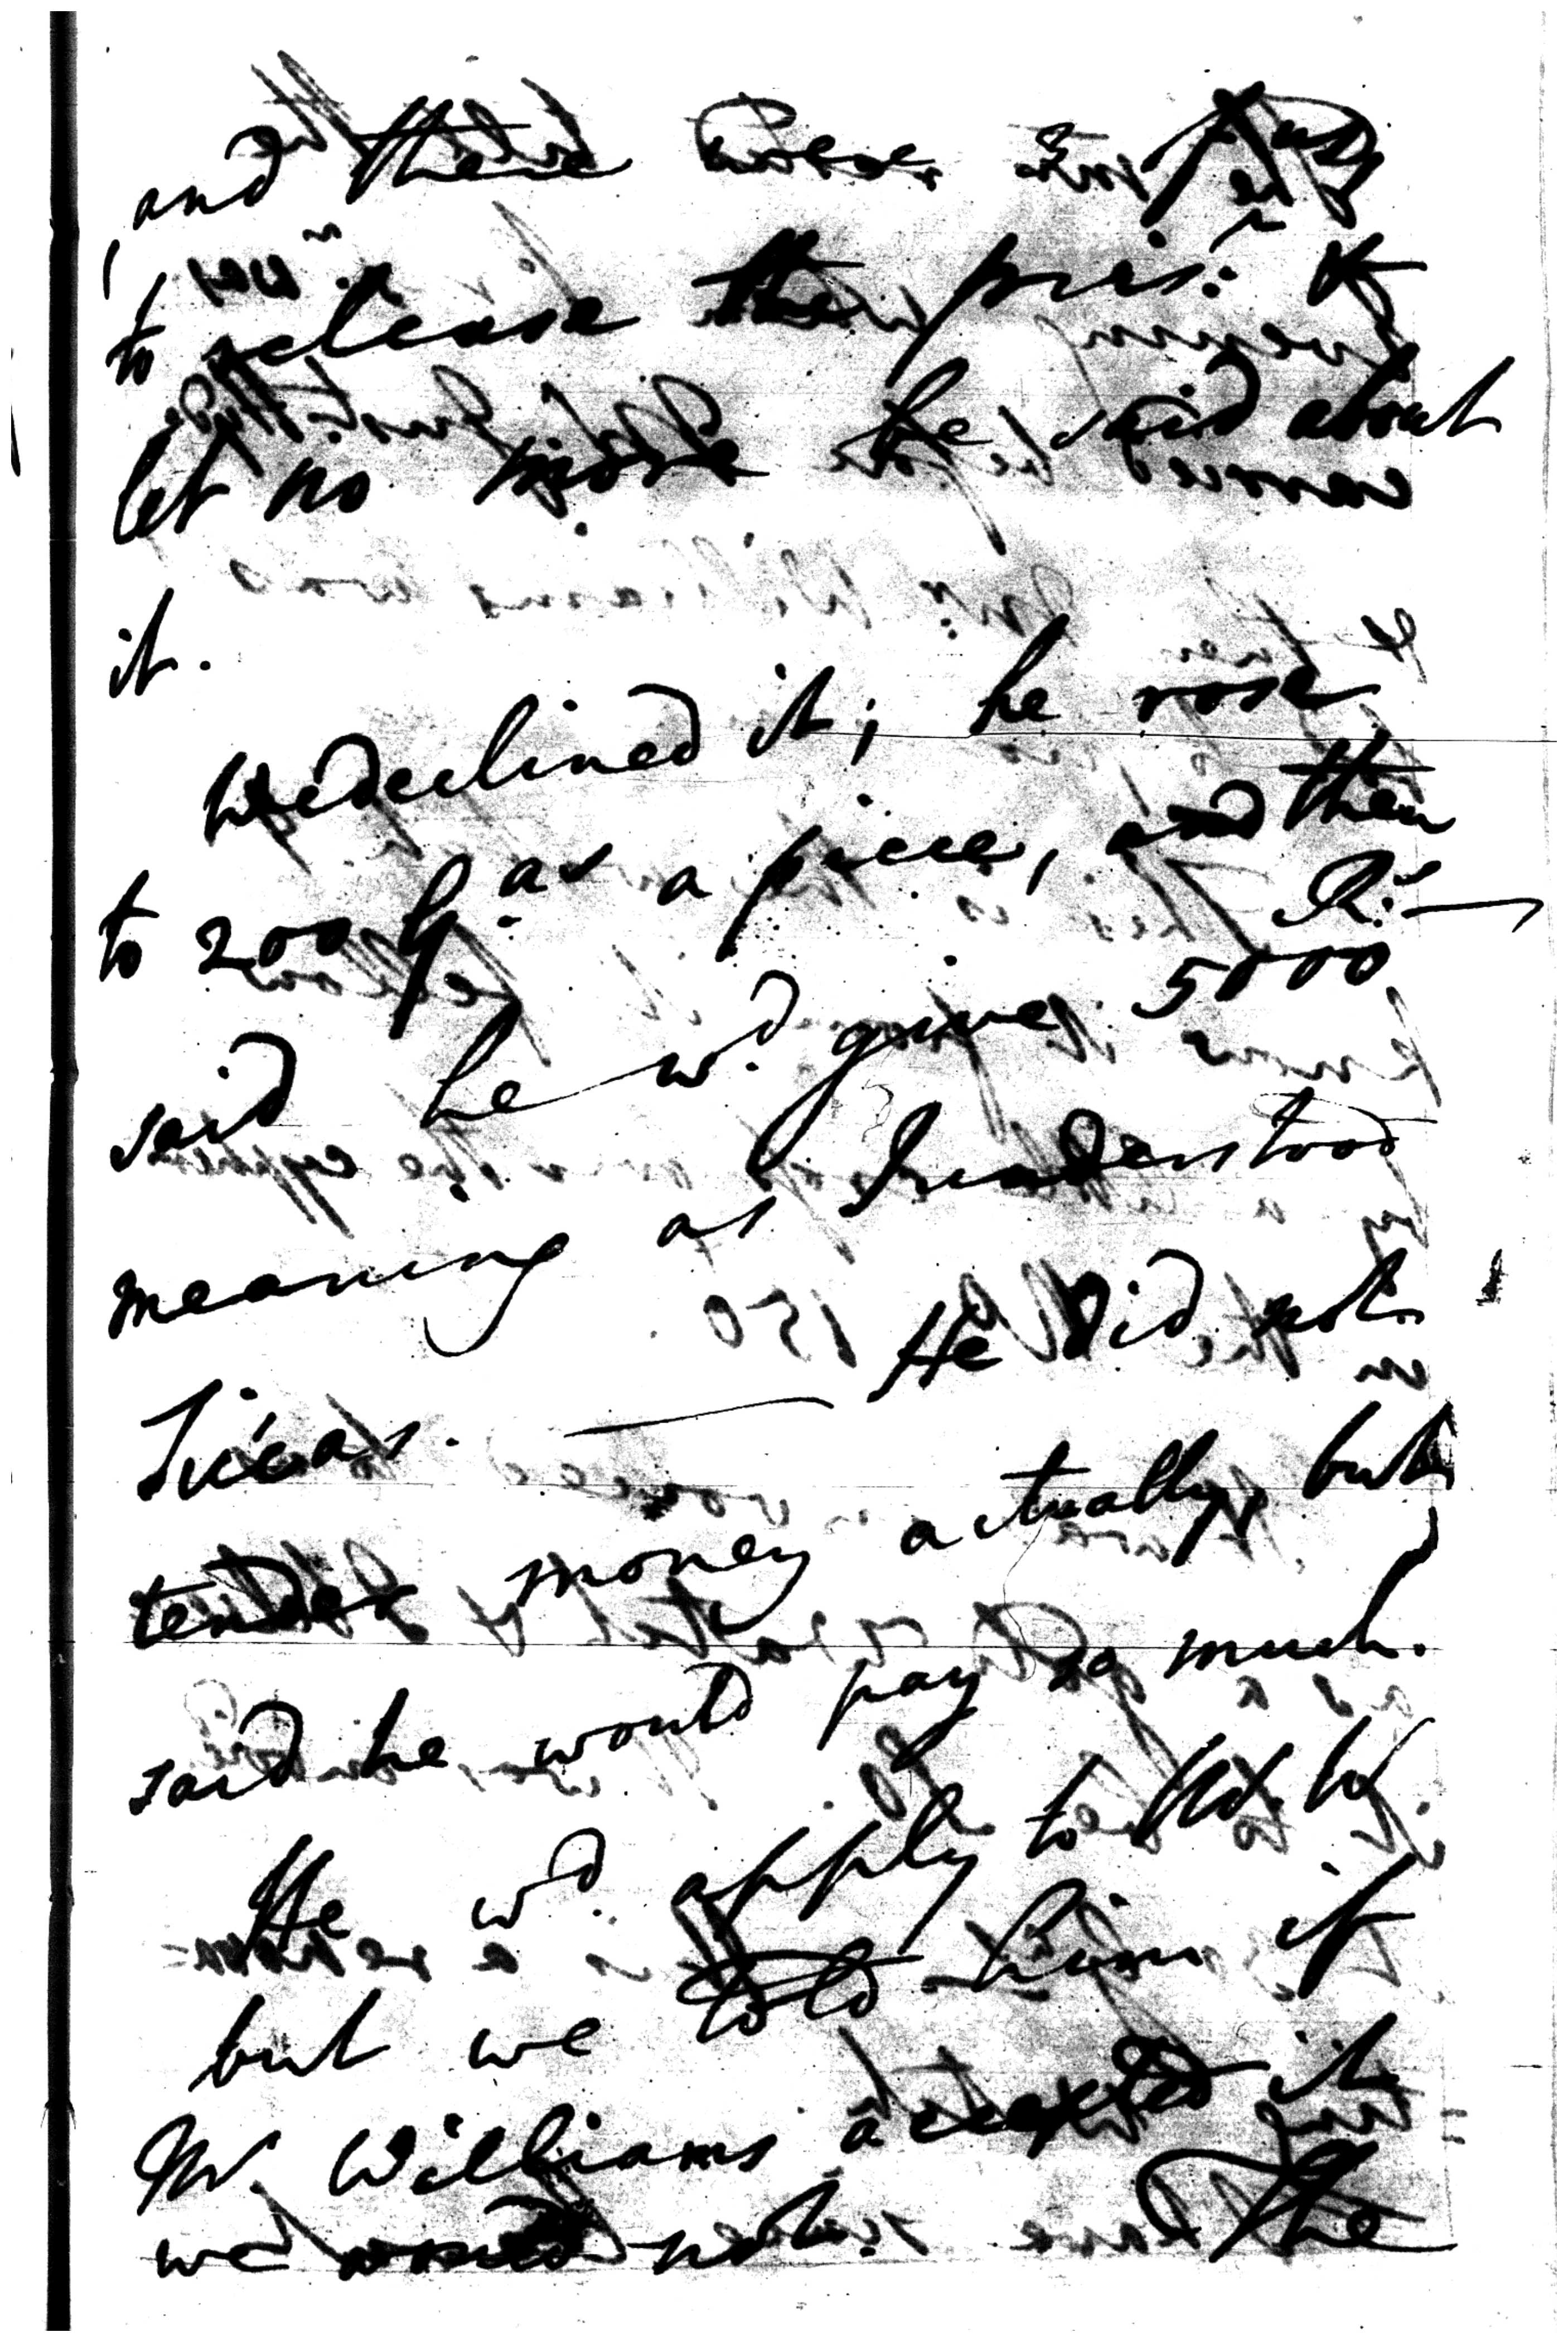 and there were 3 of us
to release the pris:r &
let no more be said about
it.
We declined it; he rose
to 200 G.as a piece, and then
said he w.d give 5000 R.s —
meaning as I understood
Siccas. — He did not
tender money actually, but
said he would pay so much.
He w.d apply to Mr. W
but we told him if
Mr. Williams accepted it
we would not. The